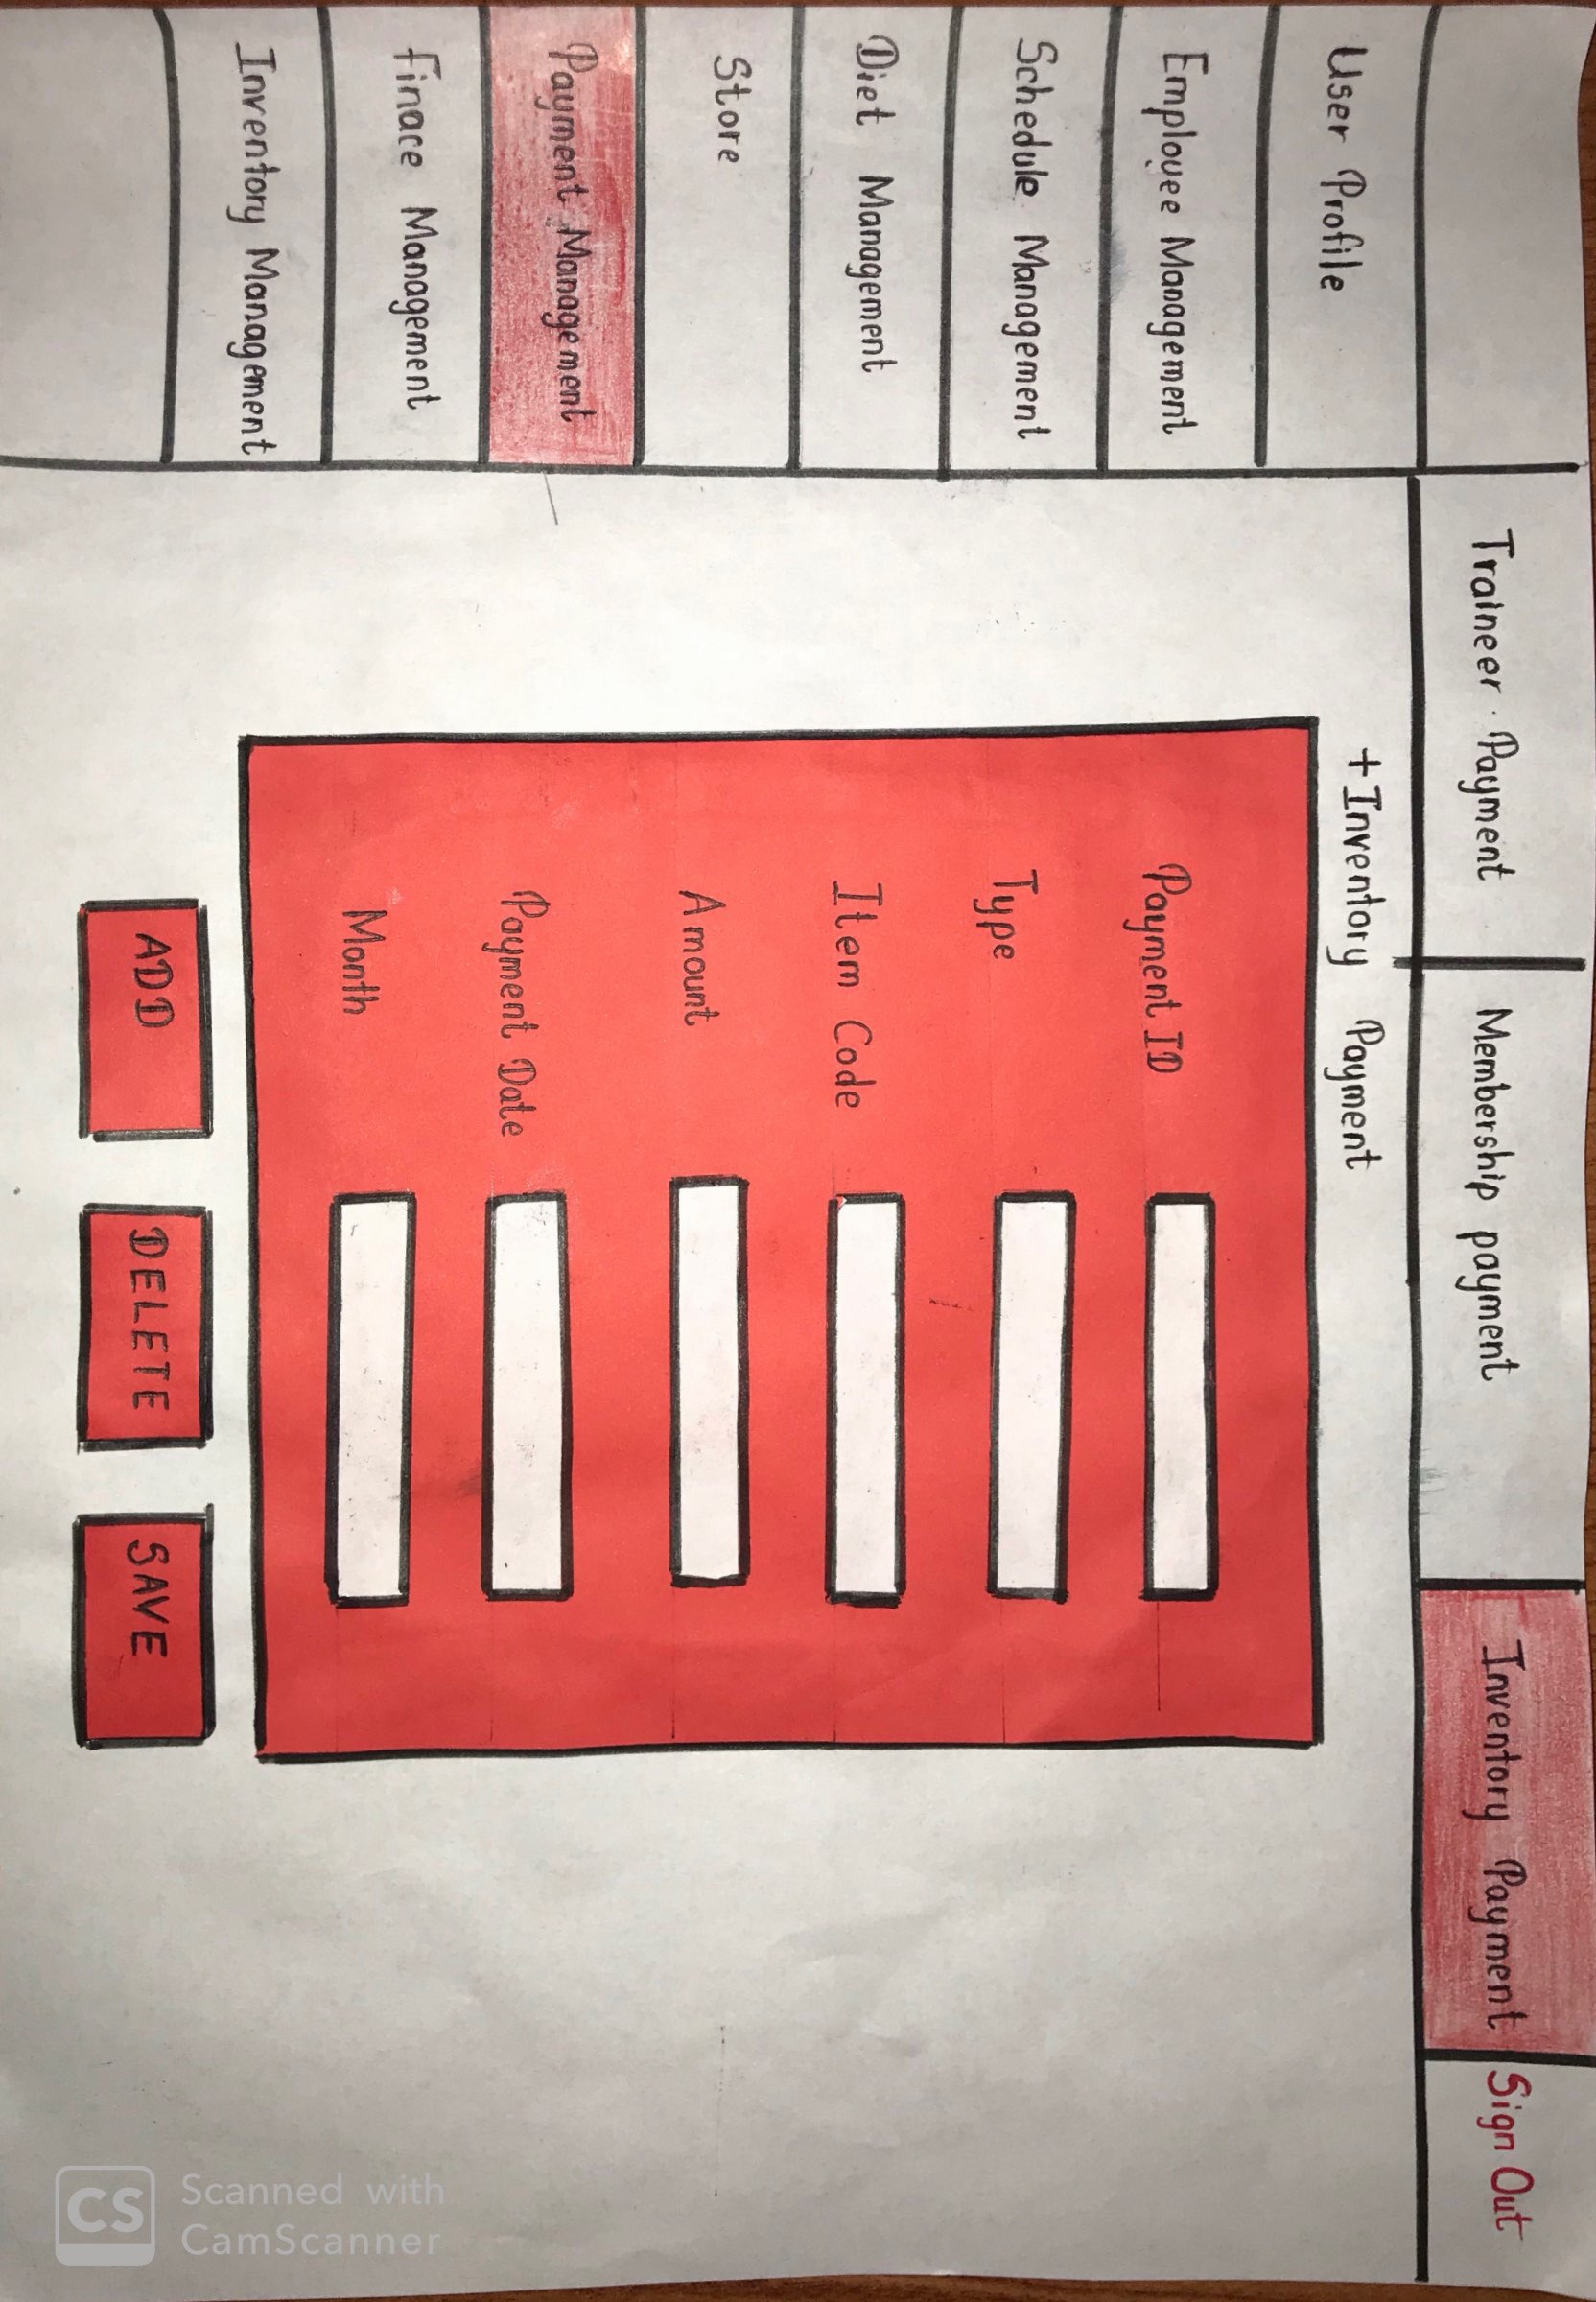 Traineer Payment
Membership payment
Inventory Payment
Sign Out
User Profile
Employee Management
Schedule Management
Diet Management
Store
Payment Management
Finace Management
Inventory Management
+Inventory Payment
Payment ID
Type
Item Code
Amount
Payment Date
Month
ADD
DELETE
SAVE
CS
Scanned with
CamScanner